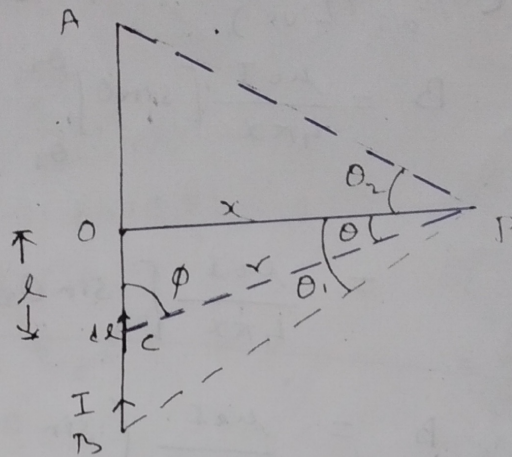 A
θ₂
x
O
P
θ
l
φ
r
θ₁
dl
C
I
B